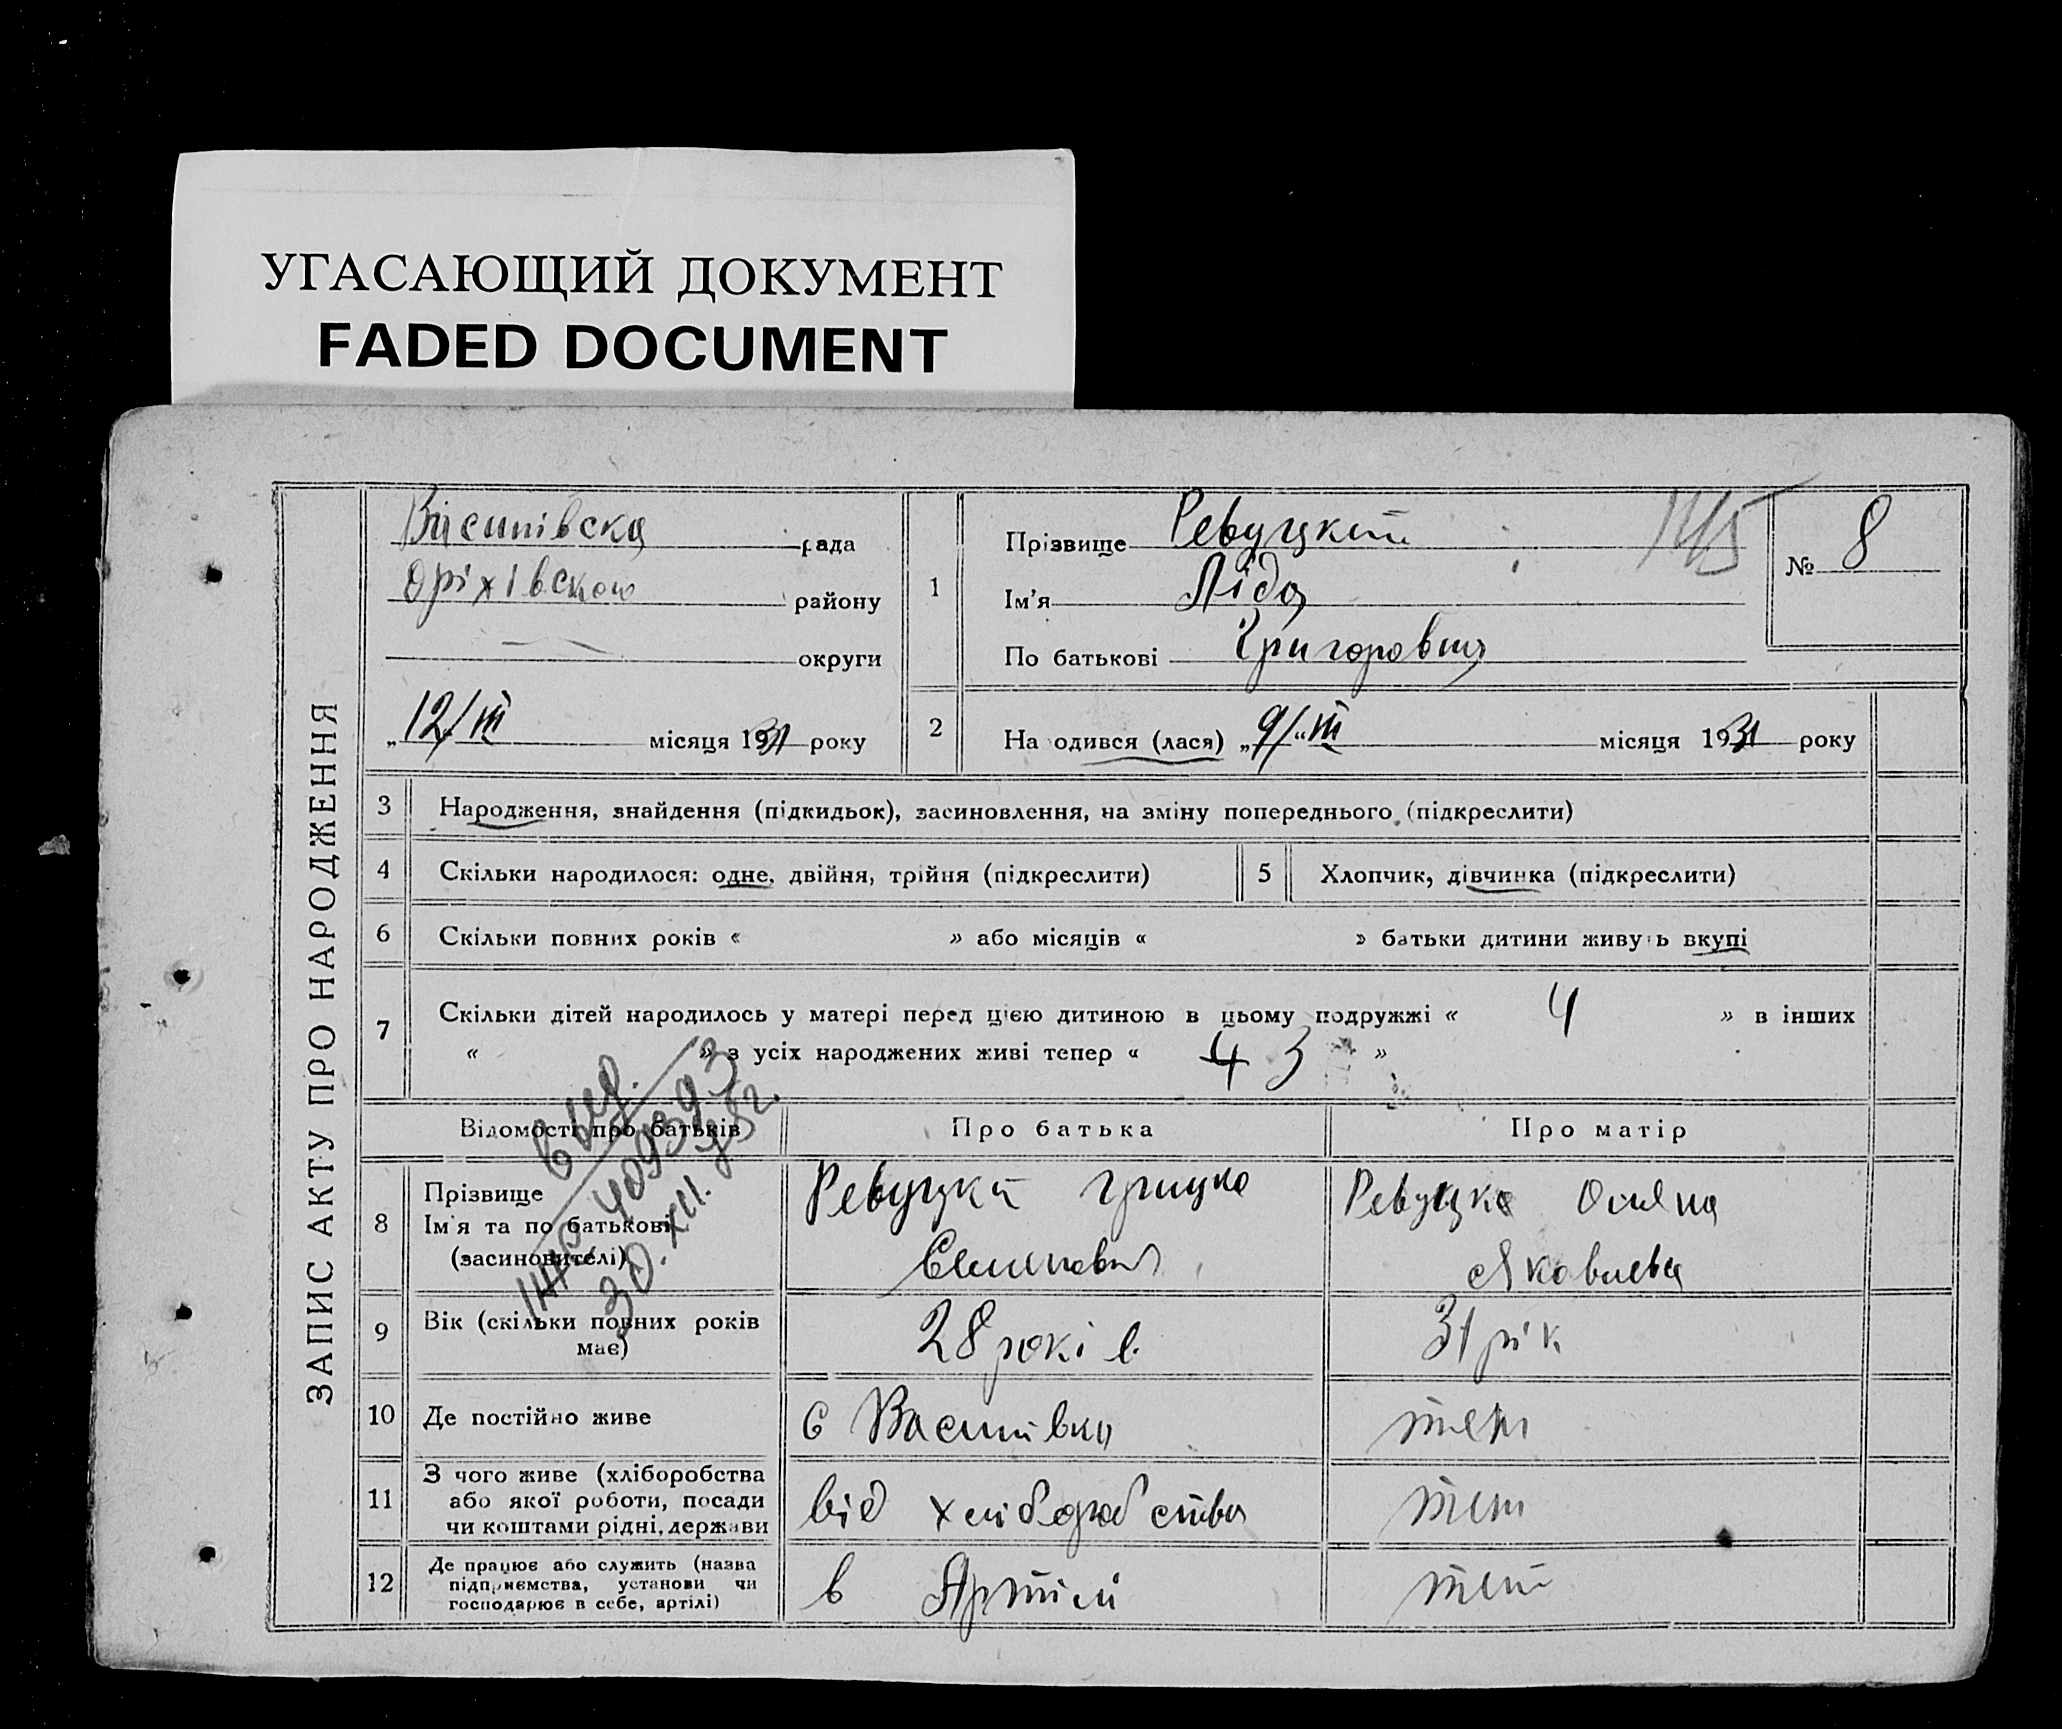 УГАСАЮЩИЙ ДОКУМЕНТ
FADED DOCUMENT
ЗАПИС АКТУ ПРО НАРОДЖЕННЯ
Василівска рада
Оріхівского району
округи
„12/III місяця 1931 року
1
Прізвище Ревуцкий
Ім'я Ліда
По батькові Григоровна
№ 8
2
На одився (лася) „9/“III місяця 1931 року
3 Народження, знайдення (підкидьок), засиновлення, на зміну попереднього (підкреслити)
4 Скільки народилося: одне, двійня, трійня (підкреслити)
5 Хлопчик, дівчинка (підкреслити)
6 Скільки повних років « » або місяців « » батьки дитини живуть вкупі
7 Скільки дітей народилось у матері перед цією дитиною в цьому подружжі « 4 » в інших
« » з усіх народжених живі тепер « 4 3 »
Відомості про батьків
Про батька
Про матір
8 Прізвище
Ім'я та по батькові
(засиновителі)
Ревуцкий Грицко
Ревуцка Оляна
Яковлевна
9 Вік (скільки повних років
має)
28 років
31 рік
10 Де постійно живе
с Василівка
теж
11 З чого живе (хліборобства
або якої роботи, посади
чи коштами рідні, держави
від хліборобства
теж
12 Де працює або служить (назва
підприємства, установи чи
господарює в себе, артілі)
в Артілі
теж
409393
30.XII.